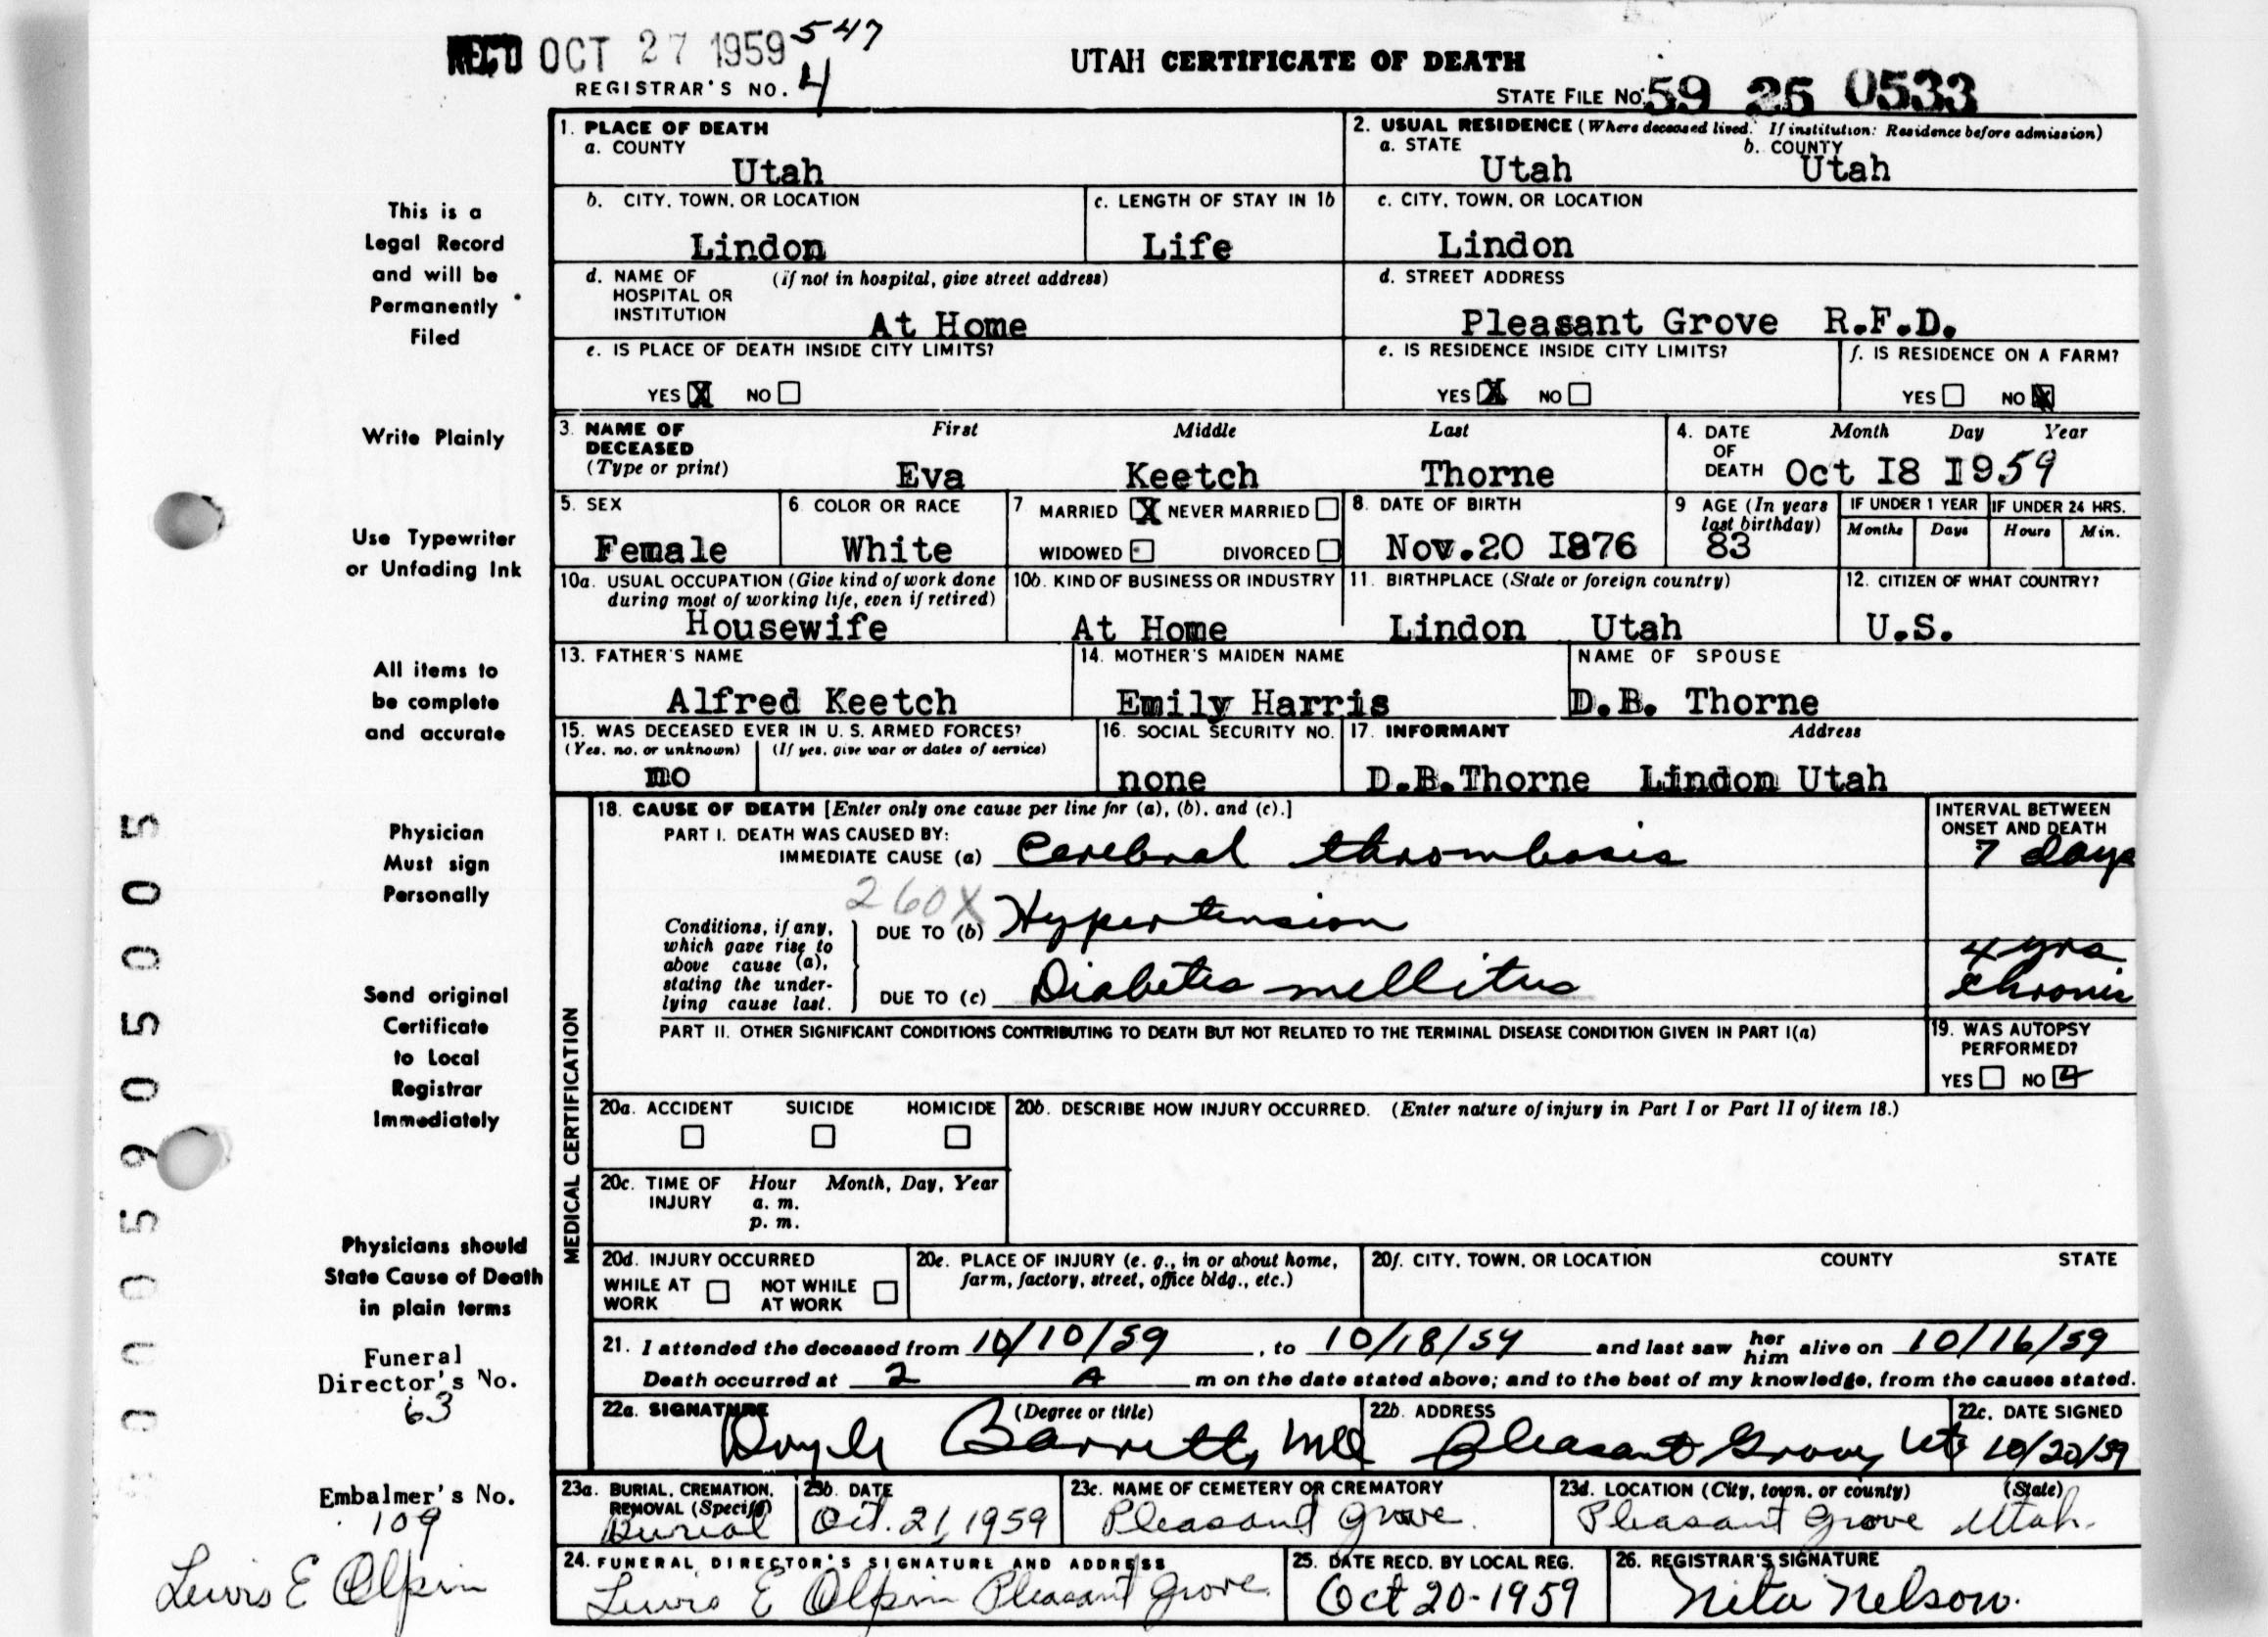 REC'D OCT 27 1959 547
REGISTRAR'S NO. 4
UTAH CERTIFICATE OF DEATH
STATE FILE NO. 59 25 0533
1. PLACE OF DEATH
a. COUNTY
Utah
2. USUAL RESIDENCE (Where deceased lived. If institution: Residence before admission)
a. STATE b. COUNTY
Utah Utah
b. CITY, TOWN, OR LOCATION
Lindon
c. LENGTH OF STAY IN 1b
Life
c. CITY, TOWN, OR LOCATION
Lindon
d. NAME OF (if not in hospital, give street address)
HOSPITAL OR
INSTITUTION
At Home
d. STREET ADDRESS
Pleasant Grove R.F.D.
e. IS PLACE OF DEATH INSIDE CITY LIMITS?
YES X NO
e. IS RESIDENCE INSIDE CITY LIMITS?
YES X NO
f. IS RESIDENCE ON A FARM?
YES NO X
3. NAME OF First Middle Last
DECEASED
(Type or print) Eva Keetch Thorne
4. DATE Month Day Year
OF
DEATH Oct I8 I959
5. SEX
Female
6. COLOR OR RACE
White
7 MARRIED X NEVER MARRIED
WIDOWED DIVORCED
8. DATE OF BIRTH
Nov.20 I876
9 AGE (In years
last birthday)
83
IF UNDER 1 YEAR
Months Days
IF UNDER 24 HRS.
Hours Min.
10a. USUAL OCCUPATION (Give kind of work done
during most of working life, even if retired)
Housewife
10b. KIND OF BUSINESS OR INDUSTRY
At Home
11. BIRTHPLACE (State or foreign country)
Lindon Utah
12. CITIZEN OF WHAT COUNTRY?
U.S.
13. FATHER'S NAME
Alfred Keetch
14. MOTHER'S MAIDEN NAME
Emily Harris
NAME OF SPOUSE
D.B. Thorne
15. WAS DECEASED EVER IN U. S. ARMED FORCES?
(Yes, no, or unknown) (If yes, give war or dates of service)
no
16. SOCIAL SECURITY NO.
none
17. INFORMANT Address
D.B.Thorne Lindon Utah
MEDICAL CERTIFICATION
18. CAUSE OF DEATH [Enter only one cause per line for (a), (b), and (c).]
INTERVAL BETWEEN
ONSET AND DEATH
PART I. DEATH WAS CAUSED BY:
IMMEDIATE CAUSE (a) Cerebral thrombosis 7 days
260X
Conditions, if any,
which gave rise to
above cause (a),
stating the under-
lying cause last.
DUE TO (b) Hypertension 4 yrs
DUE TO (c) Diabetes mellitus chronic
PART II. OTHER SIGNIFICANT CONDITIONS CONTRIBUTING TO DEATH BUT NOT RELATED TO THE TERMINAL DISEASE CONDITION GIVEN IN PART I(a)
19. WAS AUTOPSY
PERFORMED?
YES NO
20a. ACCIDENT SUICIDE HOMICIDE
20b. DESCRIBE HOW INJURY OCCURRED. (Enter nature of injury in Part I or Part II of item 18.)
20c. TIME OF Hour Month, Day, Year
INJURY a. m.
p. m.
20d. INJURY OCCURRED
WHILE AT NOT WHILE
WORK AT WORK
20e. PLACE OF INJURY (e. g., in or about home,
farm, factory, street, office bldg., etc.)
20f. CITY, TOWN, OR LOCATION COUNTY STATE
21. I attended the deceased from 10/10/59, to 10/18/59 and last saw her him alive on 10/16/59
Death occurred at 2 A m on the date stated above; and to the best of my knowledge, from the causes stated.
22a. SIGNATURE (Degree or title)
Doyle Barrett, MD
22b. ADDRESS
Pleasant Grove, Ut
22c. DATE SIGNED
10/20/59
23a. BURIAL, CREMATION,
REMOVAL (Specify)
Burial
23b. DATE
Oct. 21, 1959
23c. NAME OF CEMETERY OR CREMATORY
Pleasant Grove.
23d. LOCATION (City, town, or county) (State)
Pleasant Grove Utah.
24. FUNERAL DIRECTOR'S SIGNATURE AND ADDRESS
Lewis E Olpin Pleasant Grove.
25. DATE RECD. BY LOCAL REG.
Oct 20-1959
26. REGISTRAR'S SIGNATURE
Nita Nelson.
This is a
Legal Record
and will be
Permanently
Filed
Write Plainly
Use Typewriter
or Unfading Ink
All items to
be complete
and accurate
Physician
Must sign
Personally
Send original
Certificate
to Local
Registrar
Immediately
Physicians should
State Cause of Death
in plain terms
Funeral
Director's No.
63
Embalmer's No.
109
Lewis E Olpin